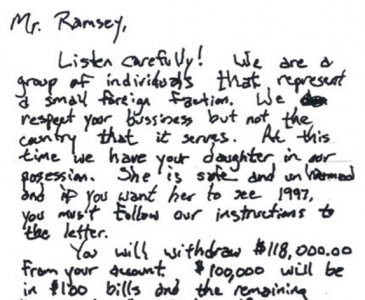 Mr. Ramsey,
Listen carefully! We are a
group of individuals that represent
a small foreign faction. We
respect your bussiness but not the
country that it serves. At this
time we have your daughter in our
posession. She is safe and unharmed
and if you want her to see 1997,
you must follow our instructions to
the letter.
You will withdraw $118,000.00
from your account. $100,000 will be
in $100 bills and the remaining